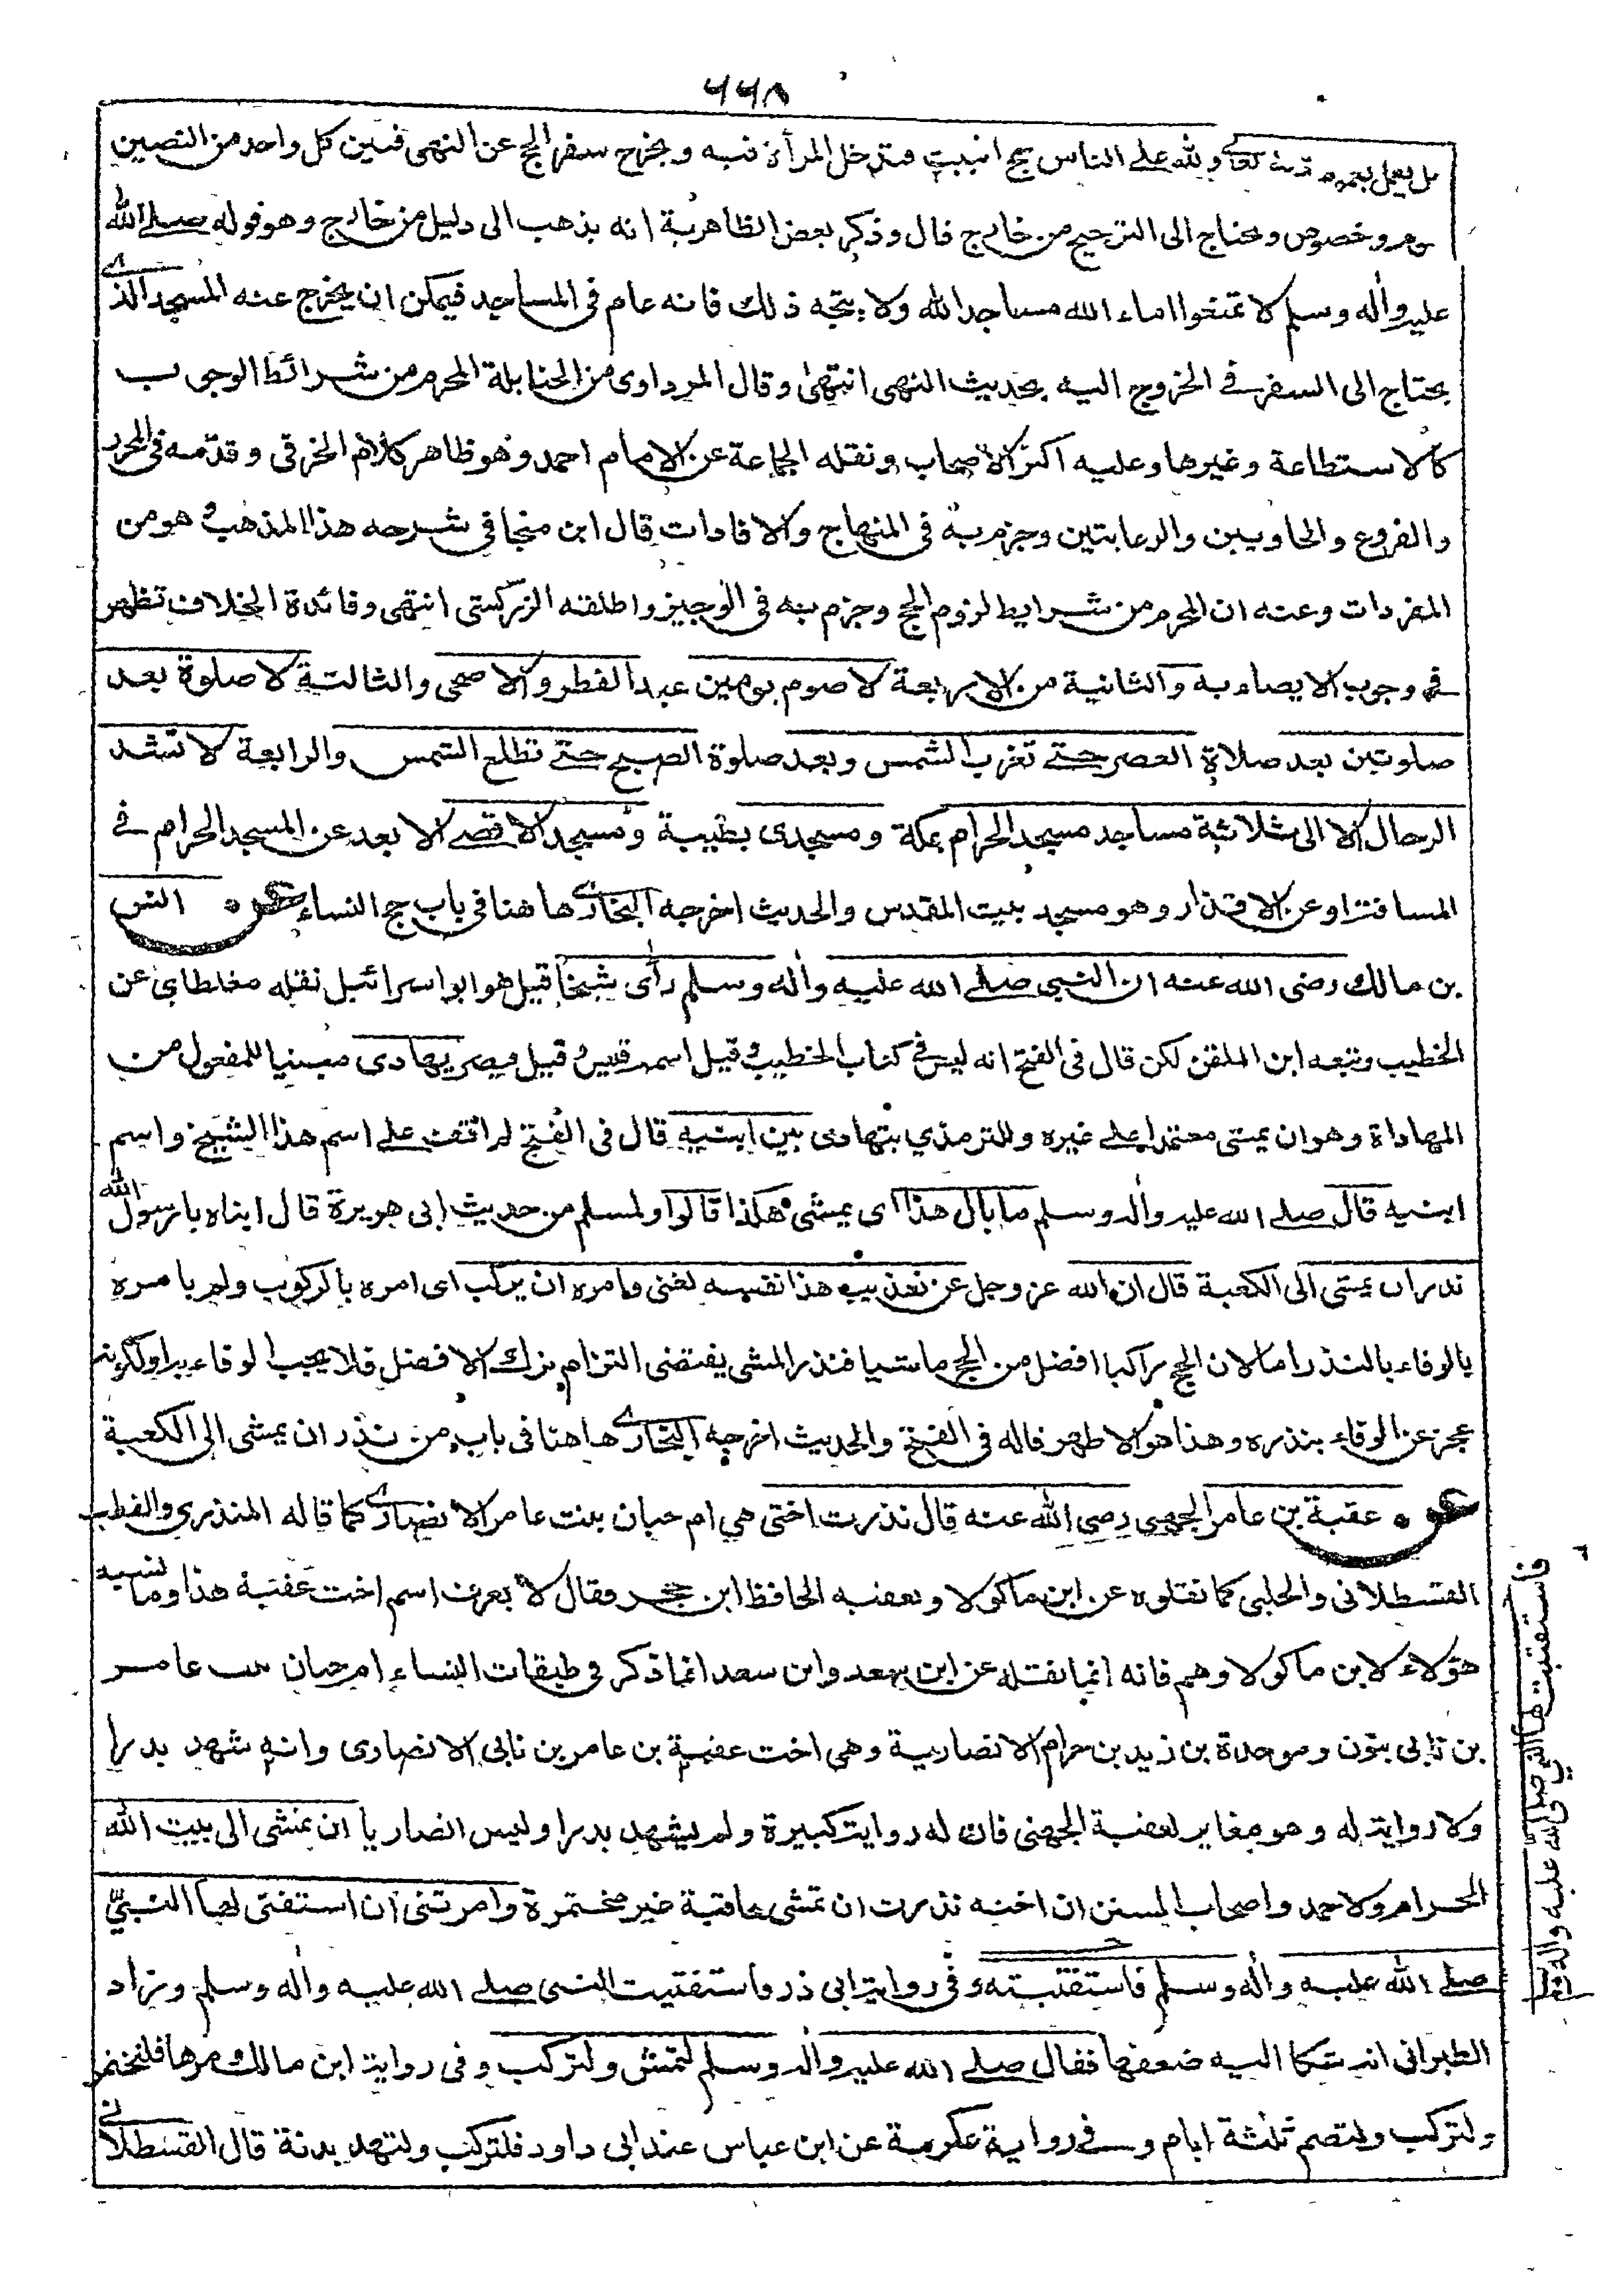 ٦٦٨
بل يعمل بعموم قوله تعالى ولله على الناس حج البيت فتدخل المرأة فيه ويخرج سفر الحج عن النهى فبين كل واحد من النصين
عموم وخصوص ويحتاج الى الترجيح من خارج قال وذكر بعض الظاهرية انه يذهب الى دليل من خارج وهو قوله صلى الله
عليه وأله وسلم لا تمنعوا اماء الله مساجد الله ولا يتجه ذلك فانه عام فى المساجد فيمكن ان يخرج عنه المسجد الذى
يحتاج الى السفر فى الخروج اليه بحديث النهى انتهى وقال المرداوى من الحنابلة المحرم من شرائط الوجوب
كالاستطاعة وغيرها وعليه اكثر الاصحاب ونقله الجماعة عن الامام احمد وهو ظاهر كلام الخرقى وقدمه فى المحرر
والفروع والحاويين والرعايتين وجزم به فى المنهاج والافادات قال ابن منجا فى شرحه هذا المذهب وهو من
المفردات وعنه ان المحرم من شرايط لزوم الحج وجزم به فى الوجيز واطلقه الزركشى انتهى وفائدة الخلاف تظهر
فى وجوب الايصاء به والثانية من الاربعة لا صوم يومين عيد الفطر والاضحى والثالثة لا صلوة بعد
صلوتين بعد صلاة العصر حتى تغرب الشمس وبعد صلوة الصبح حتى تطلع الشمس والرابعة لا تشد
الرحال الا الى ثلاثة مساجد مسجد الحرام بمكة ومسجدى بطيبة ومسجد الاقصى الابعد عن المسجد الحرام فى
المسافة او عن الاقذار وهو مسجد بيت المقدس والحديث اخرجه البخارى ها هنا فى باب حج النساء عن انس
بن مالك رضى الله عنه ان النبى صلى الله عليه وأله وسلم رأى شيخا قيل هو ابو اسرائيل نقله مغلطاى عن
الخطيب وتبعه ابن الملقن لكن قال فى الفتح انه ليس فى كتاب الخطيب وقيل اسمه قيس وقيل قيصر يهادى مبنيا للمفعول من
المهاداة وهو ان يمشى معتمدا على غيره وللترمذي يتهادى بين ابنيه قال فى الفتح لم اقف على اسم هذا الشيخ واسم
ابنيه قال صلى الله عليه وأله وسلم ما بال هذا اى يمشى هكذا قالوا ولمسلم من حديث ابى هريرة قال ابناه يا رسول الله
نذر ان يمشى الى الكعبة قال ان الله عز وجل عن تعذيب هذا نفسه لغنى وامره ان يركب اى امره بالركوب ولم يامره
بالوفاء بالنذر اما لان الحج راكبا افضل من الحج ماشيا فنذر المشى يقتضى التزام ترك الافضل فلا يجب الوفاء به او لكونه
عجز عن الوفاء بنذره وهذا هو الاظهر قاله فى الفتح والحديث اخرجه البخارى ها هنا فى باب من نذر ان يمشى الى الكعبة
عن عقبة بن عامر الجهنى رضى الله عنه قال نذرت اختى هي ام حبان بنت عامر الانصارى كما قاله المنذرى والقطب
القسطلانى والحلبى كما نقلوه عن ابن ماكولا وتعقبه الحافظ ابن حجر فقال لا يعرف اسم اخت عقبة هذا وما نسبه
هؤلاء لابن ماكولا وهم فانه انما نقله عن ابن سعد وابن سعد انما ذكر فى طبقات النساء ام حبان بنت عامر
بن نابى بنون وموحدة بن زيد بن حرام الانصارية وهى اخت عقبة بن عامر بن نابى الانصارى وانه شهد بدرا
ولا رواية له وهو مغاير لعقبة الجهنى فان له رواية كبيرة ولم يشهد بدرا وليس انصاريا ان تمشى الى بيت الله
الحرام ولاحمد واصحاب السنن ان اخته نذرت ان تمشى حافية غير مختمرة وامرتنى ان استفتى لها النبي
صلى الله عليه وأله وسلم فاستفتيته وفى رواية ابى ذر فاستفتيت النبى صلى الله عليه وأله وسلم وزاد
الطبرانى انه شكا اليه ضعفها فقال صلى الله عليه وأله وسلم لتمش ولتركب وفى رواية ابن مالك ومرها فلتختمر
ولتركب ولتصم ثلثة ايام وفى رواية عكرمة عن ابن عباس عند ابى داود فلتركب ولتهد بدنة قال القسطلانى
فاستفتيت لها النبي صلى الله عليه وأله